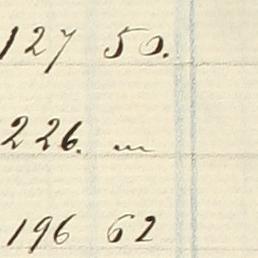 127 50.
226. "
196 62